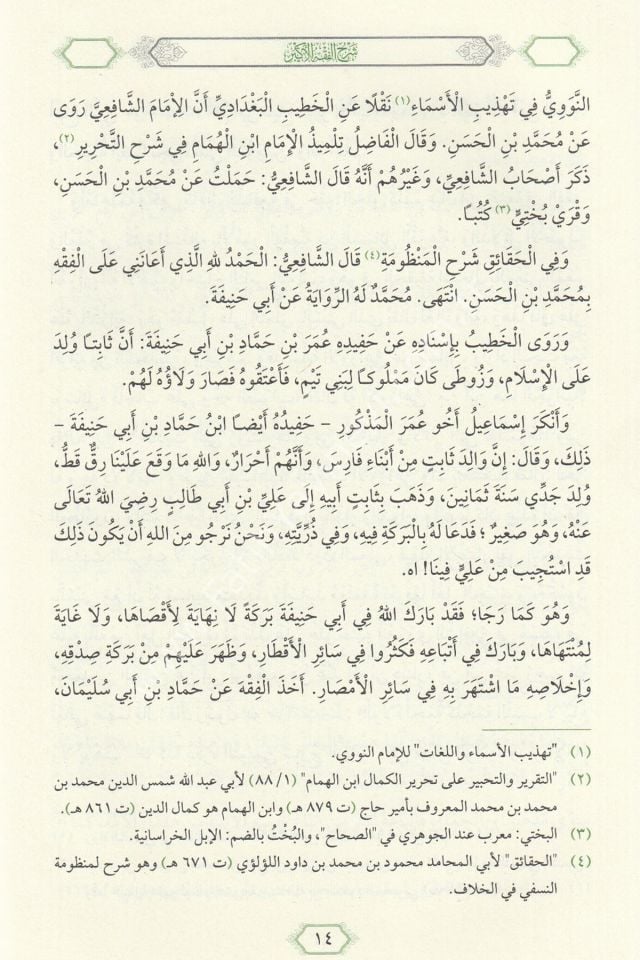 شرح الفقه الأكبر
النَّوَوِيُّ فِي تَهْذِيبِ الْأَسْمَاءِ(١) نَقْلًا عَنِ الْخَطِيبِ الْبَغْدَادِيِّ أَنَّ الْإِمَامَ الشَّافِعِيَّ رَوَى
عَنْ مُحَمَّدِ بْنِ الْحَسَنِ. وَقَالَ الْفَاضِلُ تِلْمِيذُ الْإِمَامِ ابْنِ الْهُمَامِ فِي شَرْحِ التَّحْرِيرِ(٢)،
ذَكَرَ أَصْحَابُ الشَّافِعِيِّ، وَغَيْرُهُمْ أَنَّهُ قَالَ الشَّافِعِيُّ: حَمَلْتُ عَنْ مُحَمَّدِ بْنِ الْحَسَنِ،
وَقْرَيْ بُخْتِيٍّ(٣) كُتُبًا.
وَفِي الْحَقَائِقِ شَرْحِ الْمَنْظُومَةِ(٤) قَالَ الشَّافِعِيُّ: الْحَمْدُ للهِ الَّذِي أَعَانَنِي عَلَى الْفِقْهِ
بِمُحَمَّدِ بْنِ الْحَسَنِ. انْتَهَى. مُحَمَّدٌ لَهُ الرِّوَايَةُ عَنْ أَبِي حَنِيفَةَ.
وَرَوَى الْخَطِيبُ بِإِسْنَادِهِ عَنْ حَفِيدِهِ عُمَرَ بْنِ حَمَّادِ بْنِ أَبِي حَنِيفَةَ: أَنَّ ثَابِتًا وُلِدَ
عَلَى الْإِسْلَامِ، وَزُوطَى كَانَ مَمْلُوكًا لِبَنِي تَيْمٍ، فَأَعْتَقُوهُ فَصَارَ وَلَاؤُهُ لَهُمْ.
وَأَنْكَرَ إِسْمَاعِيلُ أَخُو عُمَرَ الْمَذْكُورِ – حَفِيدُهُ أَيْضًا ابْنُ حَمَّادِ بْنِ أَبِي حَنِيفَةَ –
ذَلِكَ، وَقَالَ: إِنَّ وَالِدَ ثَابِتٍ مِنْ أَبْنَاءِ فَارِسَ، وَأَنَّهُمْ أَحْرَارٌ، وَاللهِ مَا وَقَعَ عَلَيْنَا رِقٌّ قَطُّ،
وُلِدَ جَدِّي سَنَةَ ثَمَانِينَ، وَذَهَبَ بِثَابِتٍ أَبِيهِ إِلَى عَلِيِّ بْنِ أَبِي طَالِبٍ رَضِيَ اللهُ تَعَالَى
عَنْهُ، وَهُوَ صَغِيرٌ؛ فَدَعَا لَهُ بِالْبَرَكَةِ فِيهِ، وَفِي ذُرِّيَّتِهِ، وَنَحْنُ نَرْجُو مِنَ اللهِ أَنْ يَكُونَ ذَلِكَ
قَدِ اسْتُجِيبَ مِنْ عَلِيٍّ فِينَا! اه.
وَهُوَ كَمَا رَجَا؛ فَقَدْ بَارَكَ اللهُ فِي أَبِي حَنِيفَةَ بَرَكَةً لَا نِهَايَةَ لِأَقْصَاهَا، وَلَا غَايَةَ
لِمُنْتَهَاهَا، وَبَارَكَ فِي أَتْبَاعِهِ فَكَثُرُوا فِي سَائِرِ الْأَقْطَارِ، وَظَهَرَ عَلَيْهِمْ مِنْ بَرَكَةِ صِدْقِهِ،
وَإِخْلَاصِهِ مَا اشْتَهَرَ بِهِ فِي سَائِرِ الْأَمْصَارِ. أَخَذَ الْفِقْهَ عَنْ حَمَّادِ بْنِ أَبِي سُلَيْمَانَ،
(١) "تهذيب الأسماء واللغات" للإمام النووي.
(٢) "التقرير والتحبير على تحرير الكمال ابن الهمام" (١/ ٨٨) لأبي عبد الله شمس الدين محمد بن
محمد بن محمد المعروف بأمير حاج (ت ٨٧٩ هـ) وابن الهمام هو كمال الدين (ت ٨٦١ هـ).
(٣) البختي: معرب عند الجوهري في "الصحاح"، والبُخْتُ بالضم: الإبل الخراسانية.
(٤) "الحقائق" لأبي المحامد محمود بن محمد بن داود اللؤلؤي (ت ٦٧١ هـ) وهو شرح لمنظومة
النسفي في الخلاف.
١٤